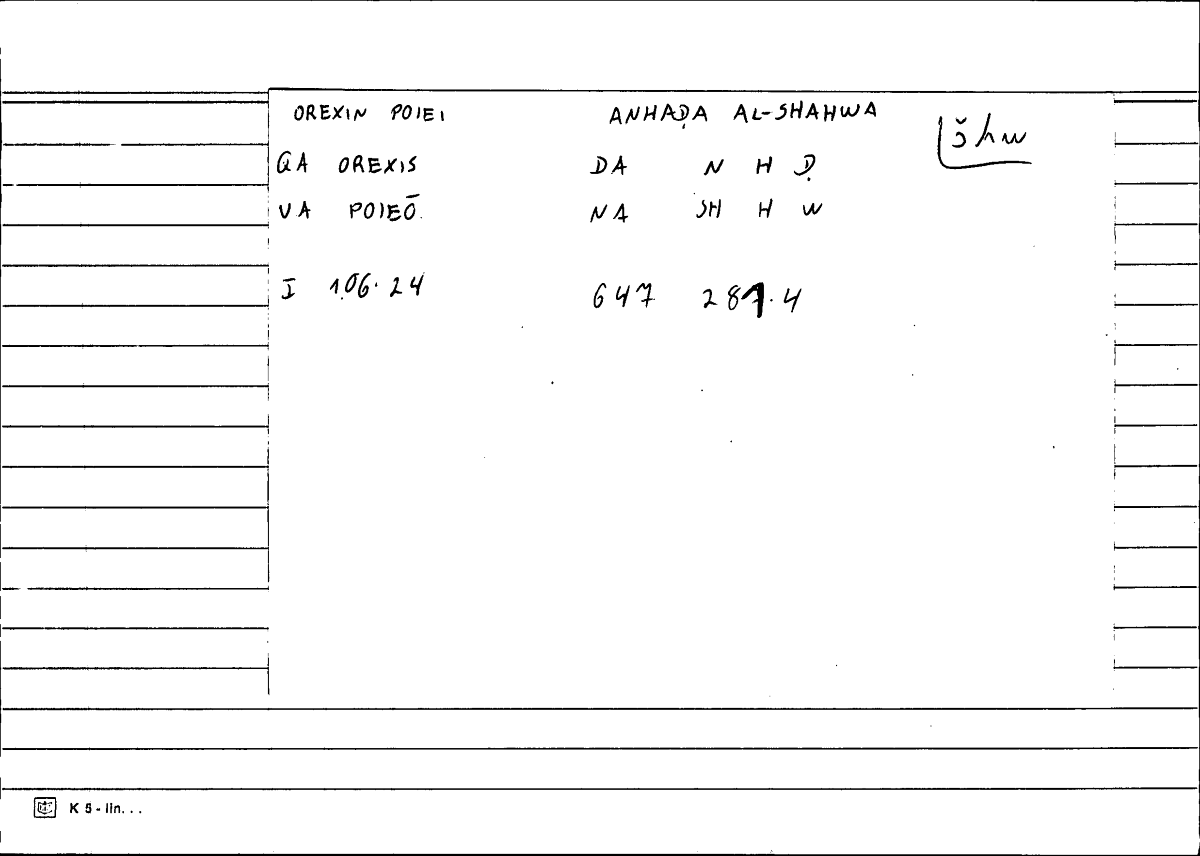 OREXIN POIEI ANHAḌA AL-SHAHWA šhw
QA OREXIS DA N H Ḍ
VA POIEŌ NA SH H W
I 106.24 647 281.4
K 5 - lin. . .